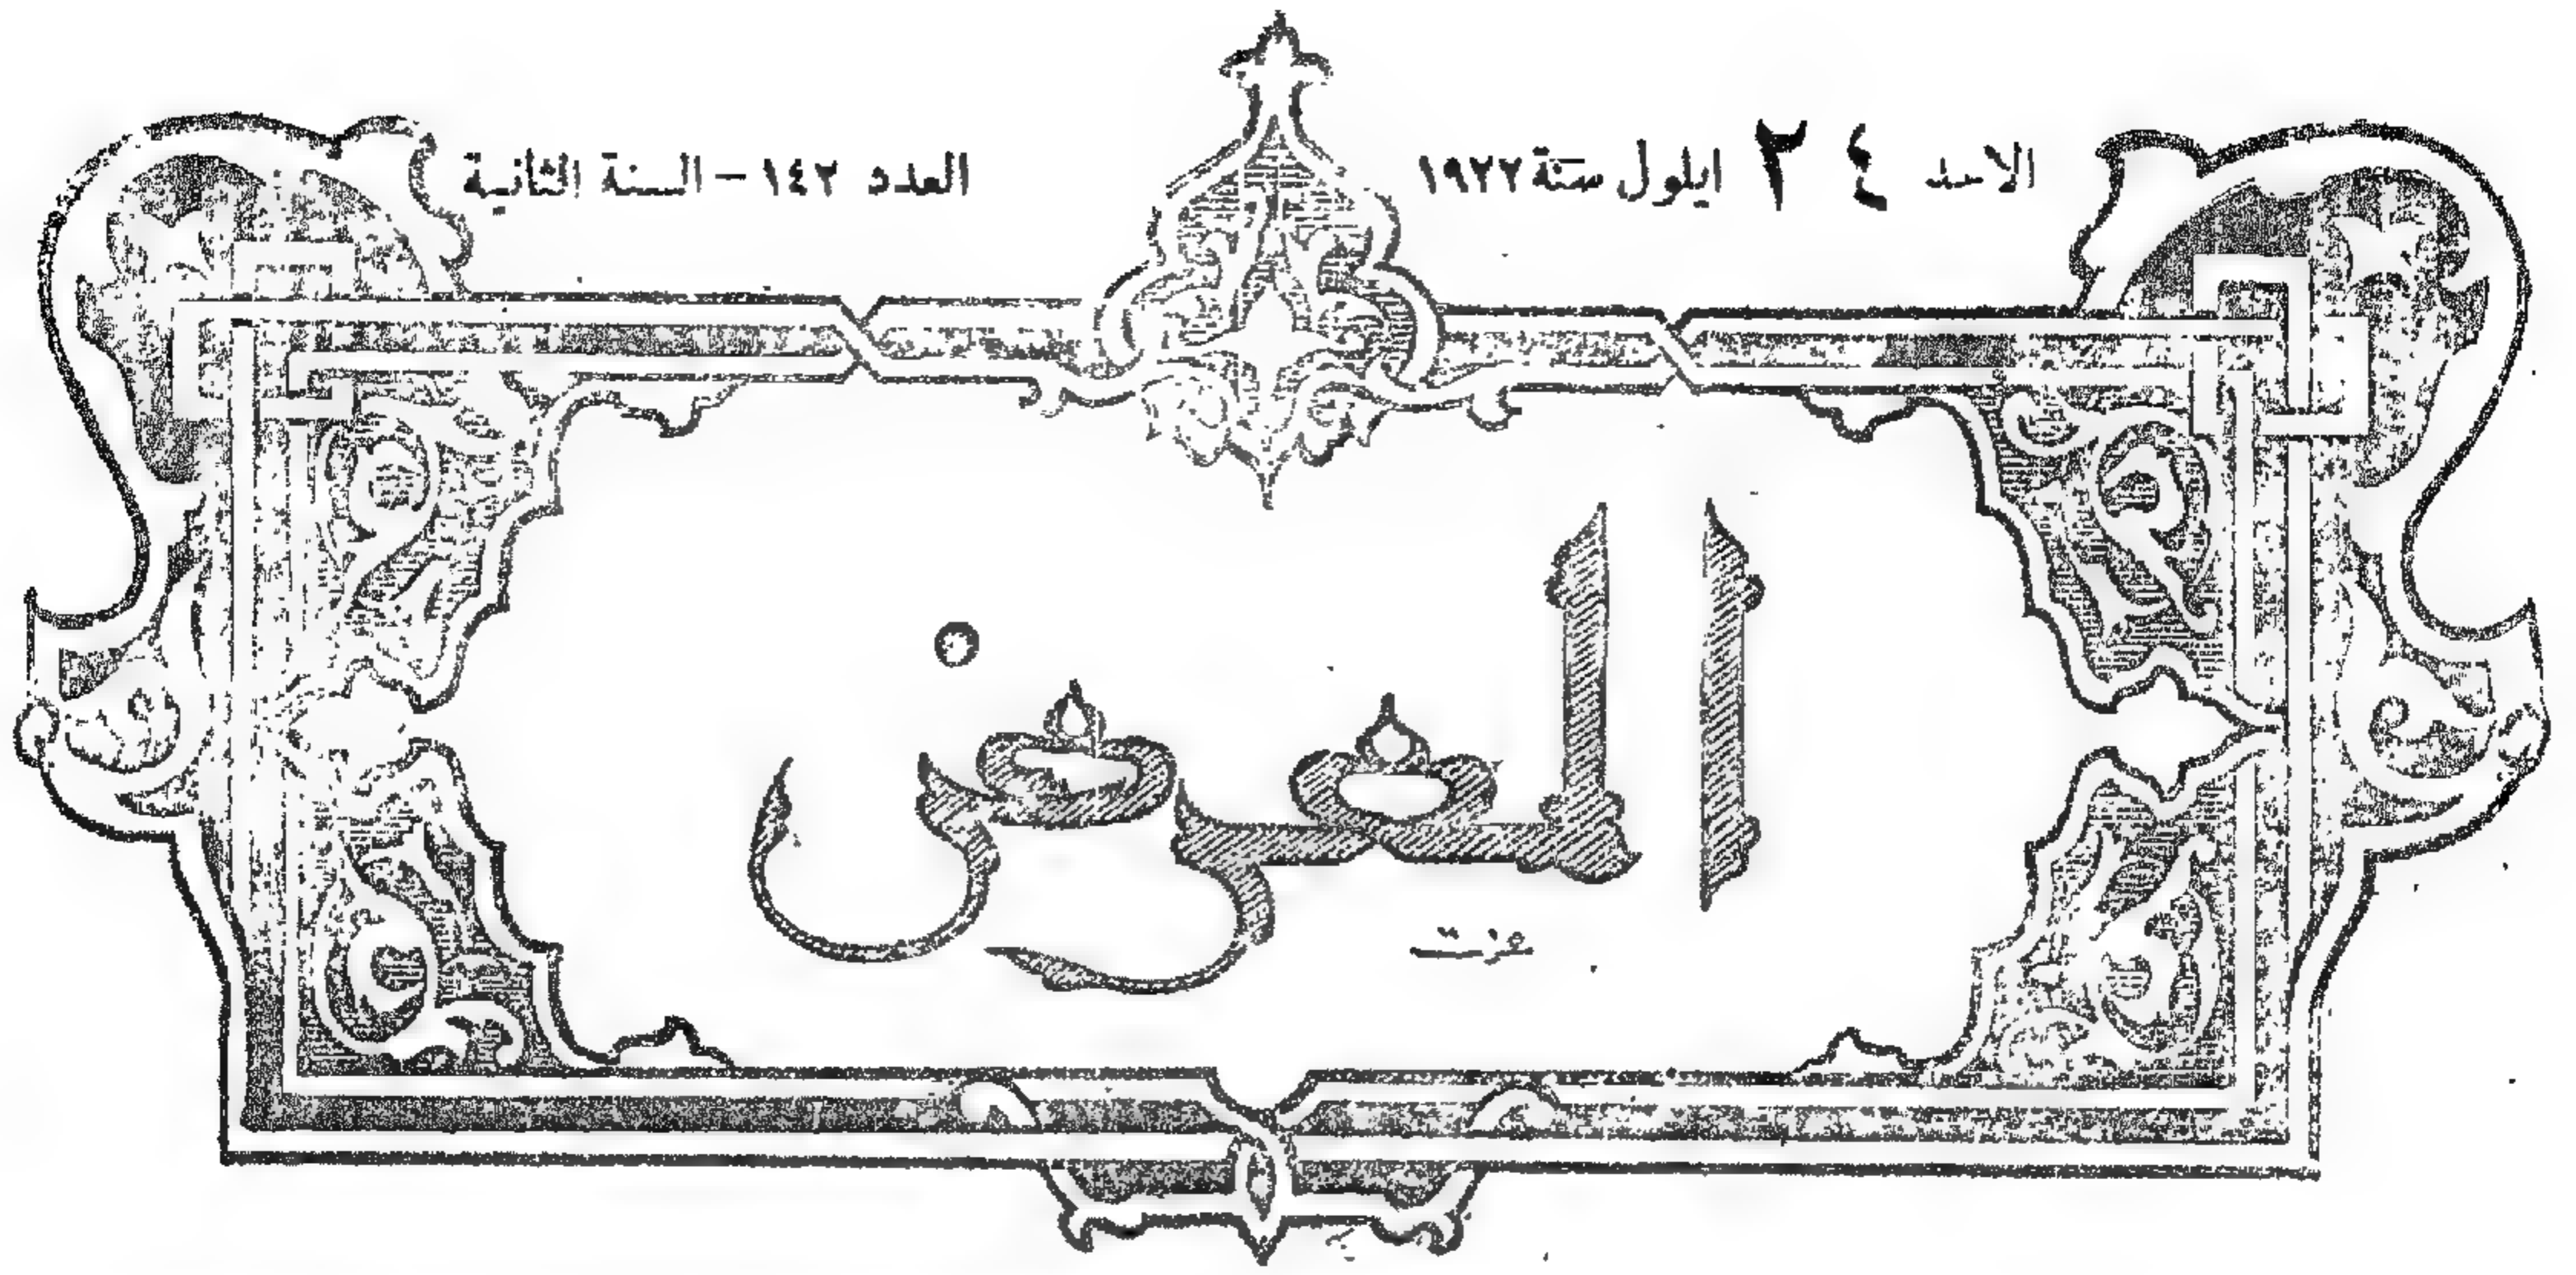 الاحد ٢٤ ايلول سنة ١٩٢٢
العدد ١٤٢ – السنة الثانية
المعرض